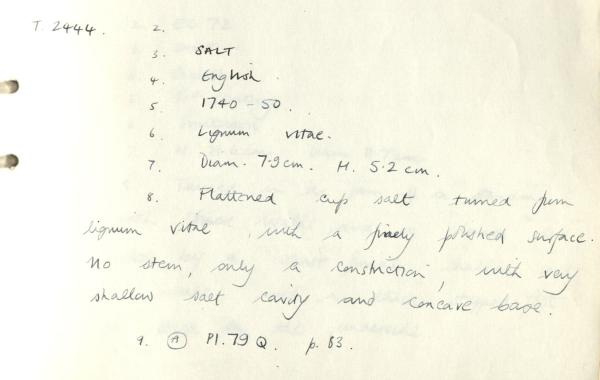 T. 2444. 2.
3. SALT
4. English.
5. 1740-50.
6. Lignum vitae.
7. Diam. 7.9cm. H. 5.2 cm.
8. Flattened cup salt turned from
lignum vitae, with a finely polished surface.
No stem, only a constriction, with very
shallow salt cavity and concave base.
9. (A) Pl. 79 Q. p. 83.